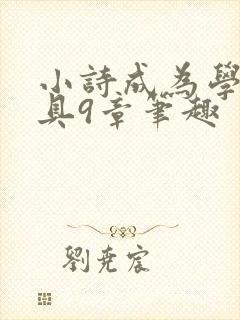 小詩成為學
具9章筆趣
劉堯宸